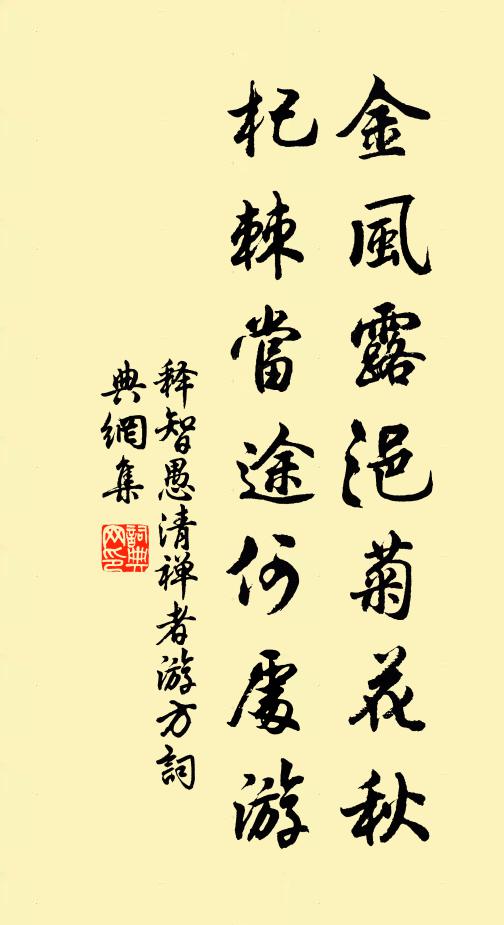 金風露浥菊花秋
杞棘當途何處游
释智愚清禅者游方詞
典網集
詞典網印